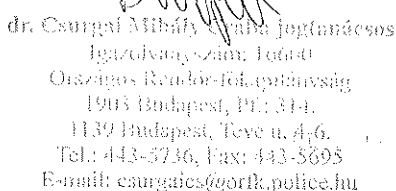 dr. Csurgai Mihály Csaba jogtanácsos
Igazolványszám:
Országos Rendőr-főkapitányság
1903 Budapest, Pf.: 314.
1139 Budapest, Teve u. 4-6.
Tel.: 443-5736, Fax: 443-5695
E-mail: csurgaics@orfk.police.hu